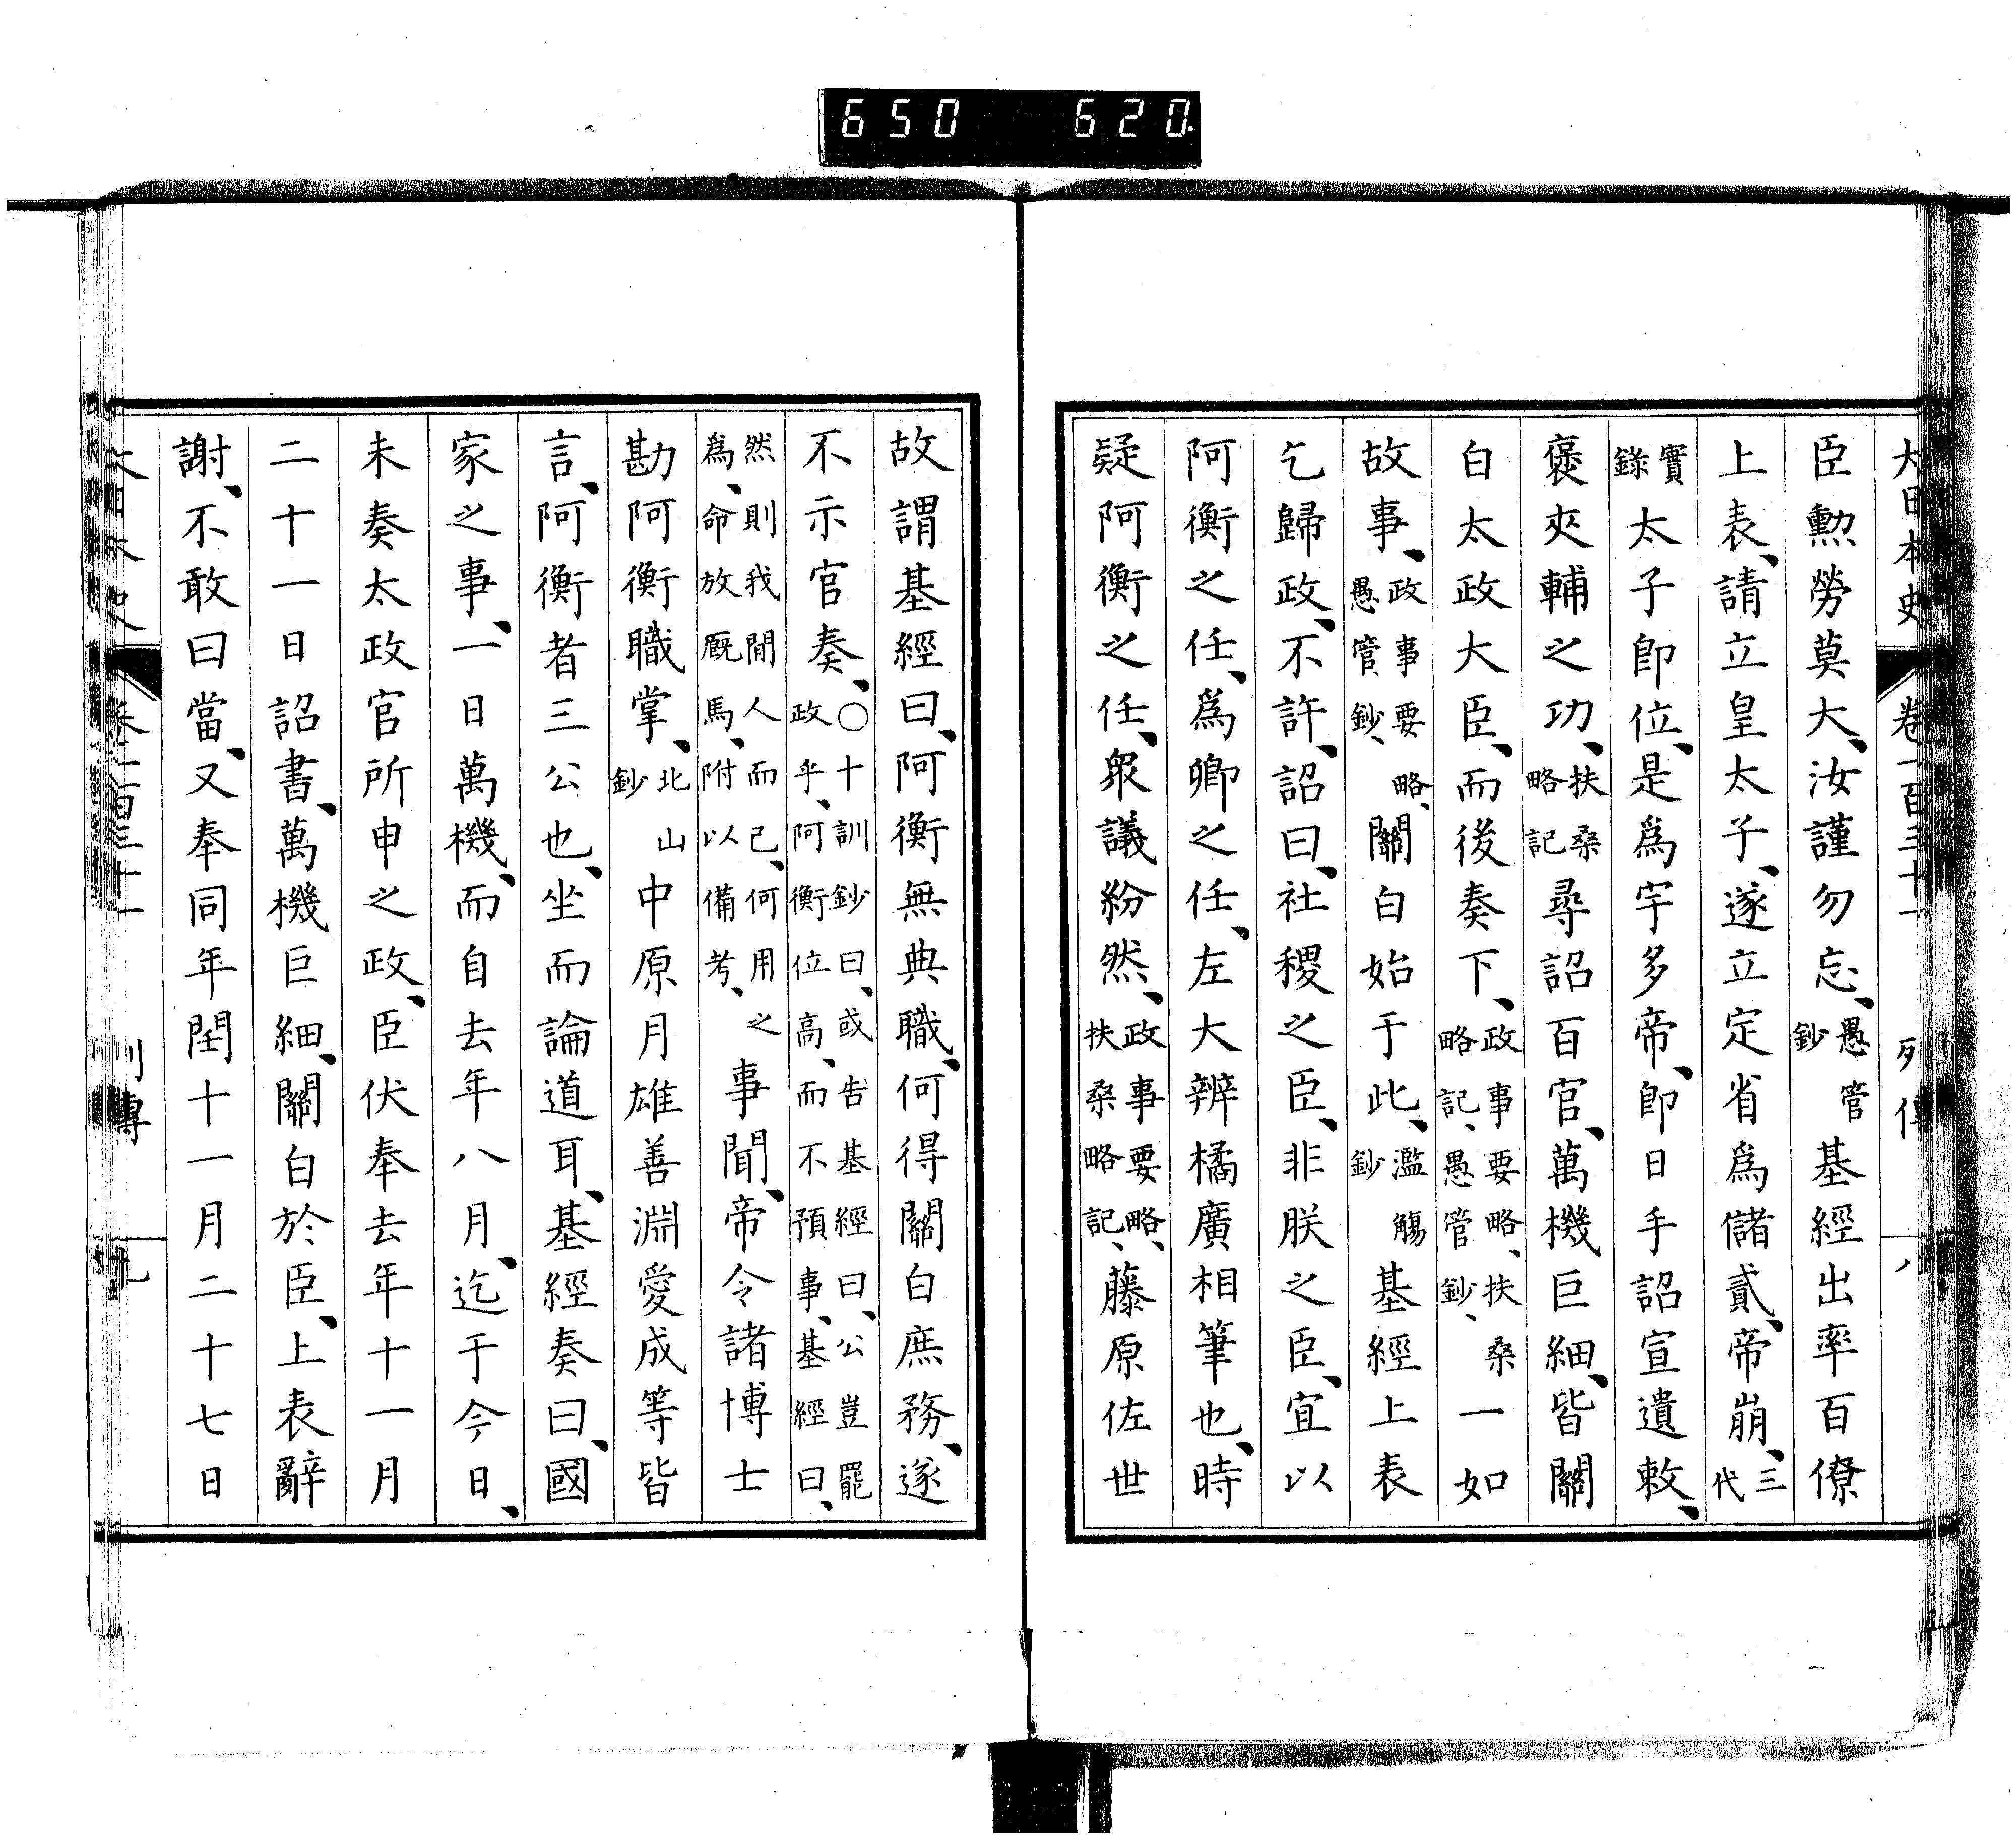 650 620.
大日本史 卷一百三十一 列傳 八
臣勲勞莫大、汝謹勿忘、愚管鈔基經出率百僚
上表、請立皇太子、遂立定省爲儲貳、帝崩、三代
實錄太子卽位、是爲宇多帝、卽日手詔宣遺敕、
褒夾輔之功、扶桑略記尋詔百官、萬機巨細、皆關
白太政大臣、而後奏下、政事要略、扶桑略記、愚管鈔、一如
故事、政事要略、愚管鈔、關白始于此、濫觴鈔基經上表
乞歸政、不許、詔曰、社稷之臣、非朕之臣、宜以
阿衡之任、爲卿之任、左大辨橘廣相筆也、時
疑阿衡之任、衆議紛然、政事要略、扶桑略記、藤原佐世
故謂基經曰、阿衡無典職、何得關白庶務、遂
不示官奏、〇十訓鈔曰、或告基經曰、公豈罷政乎、阿衡位高、而不預事、基經曰、
然則我閒人而已、何用之爲、命放厩馬、附以備考、事聞、帝令諸博士
勘阿衡職掌、北山鈔中原月雄善淵愛成等皆
言、阿衡者三公也、坐而論道耳、基經奏曰、國
家之事、一日萬機、而自去年八月、迄于今日、
未奏太政官所申之政、臣伏奉去年十一月
二十一日詔書、萬機巨細、關白於臣、上表辭
謝、不敢曰當、又奉同年閏十一月二十七日
大日本史 卷一百三十一 列傳 九